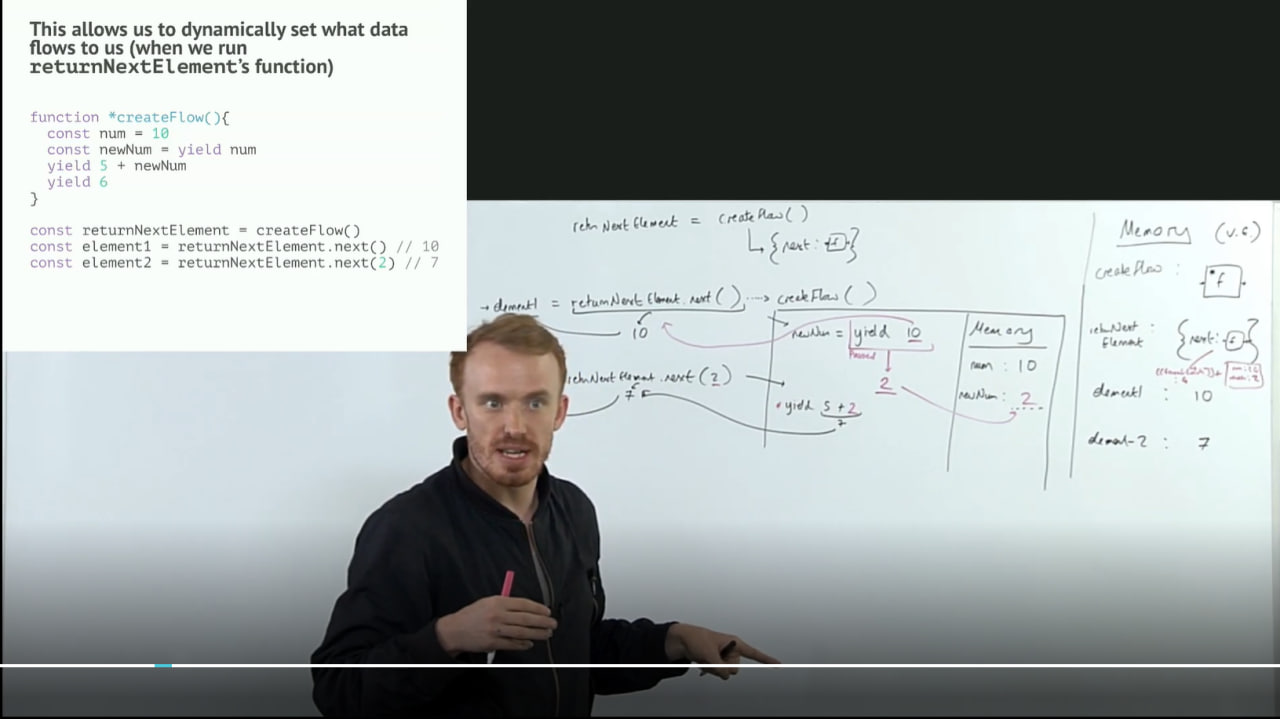 This allows us to dynamically set what data
flows to us (when we run
returnNextElement's function)
function *createFlow(){
const num = 10
const newNum = yield num
yield 5 + newNum
yield 6
}
const returnNextElement = createFlow()
const element1 = returnNextElement.next() // 10
const element2 = returnNextElement.next(2) // 7
retnNextElement = createFlow()
{next: f}
element1 = returnNextElement.next() createFlow()
10
newNum = yield 10
Paused
2
retnNextElement.next(2)
7
yield 5 + 2
7
Memory
num : 10
newNum : 2
Memory (v.e.)
createFlow : *f
retnNext
Element : {next: f}
element1 : 10
element-2 : 7